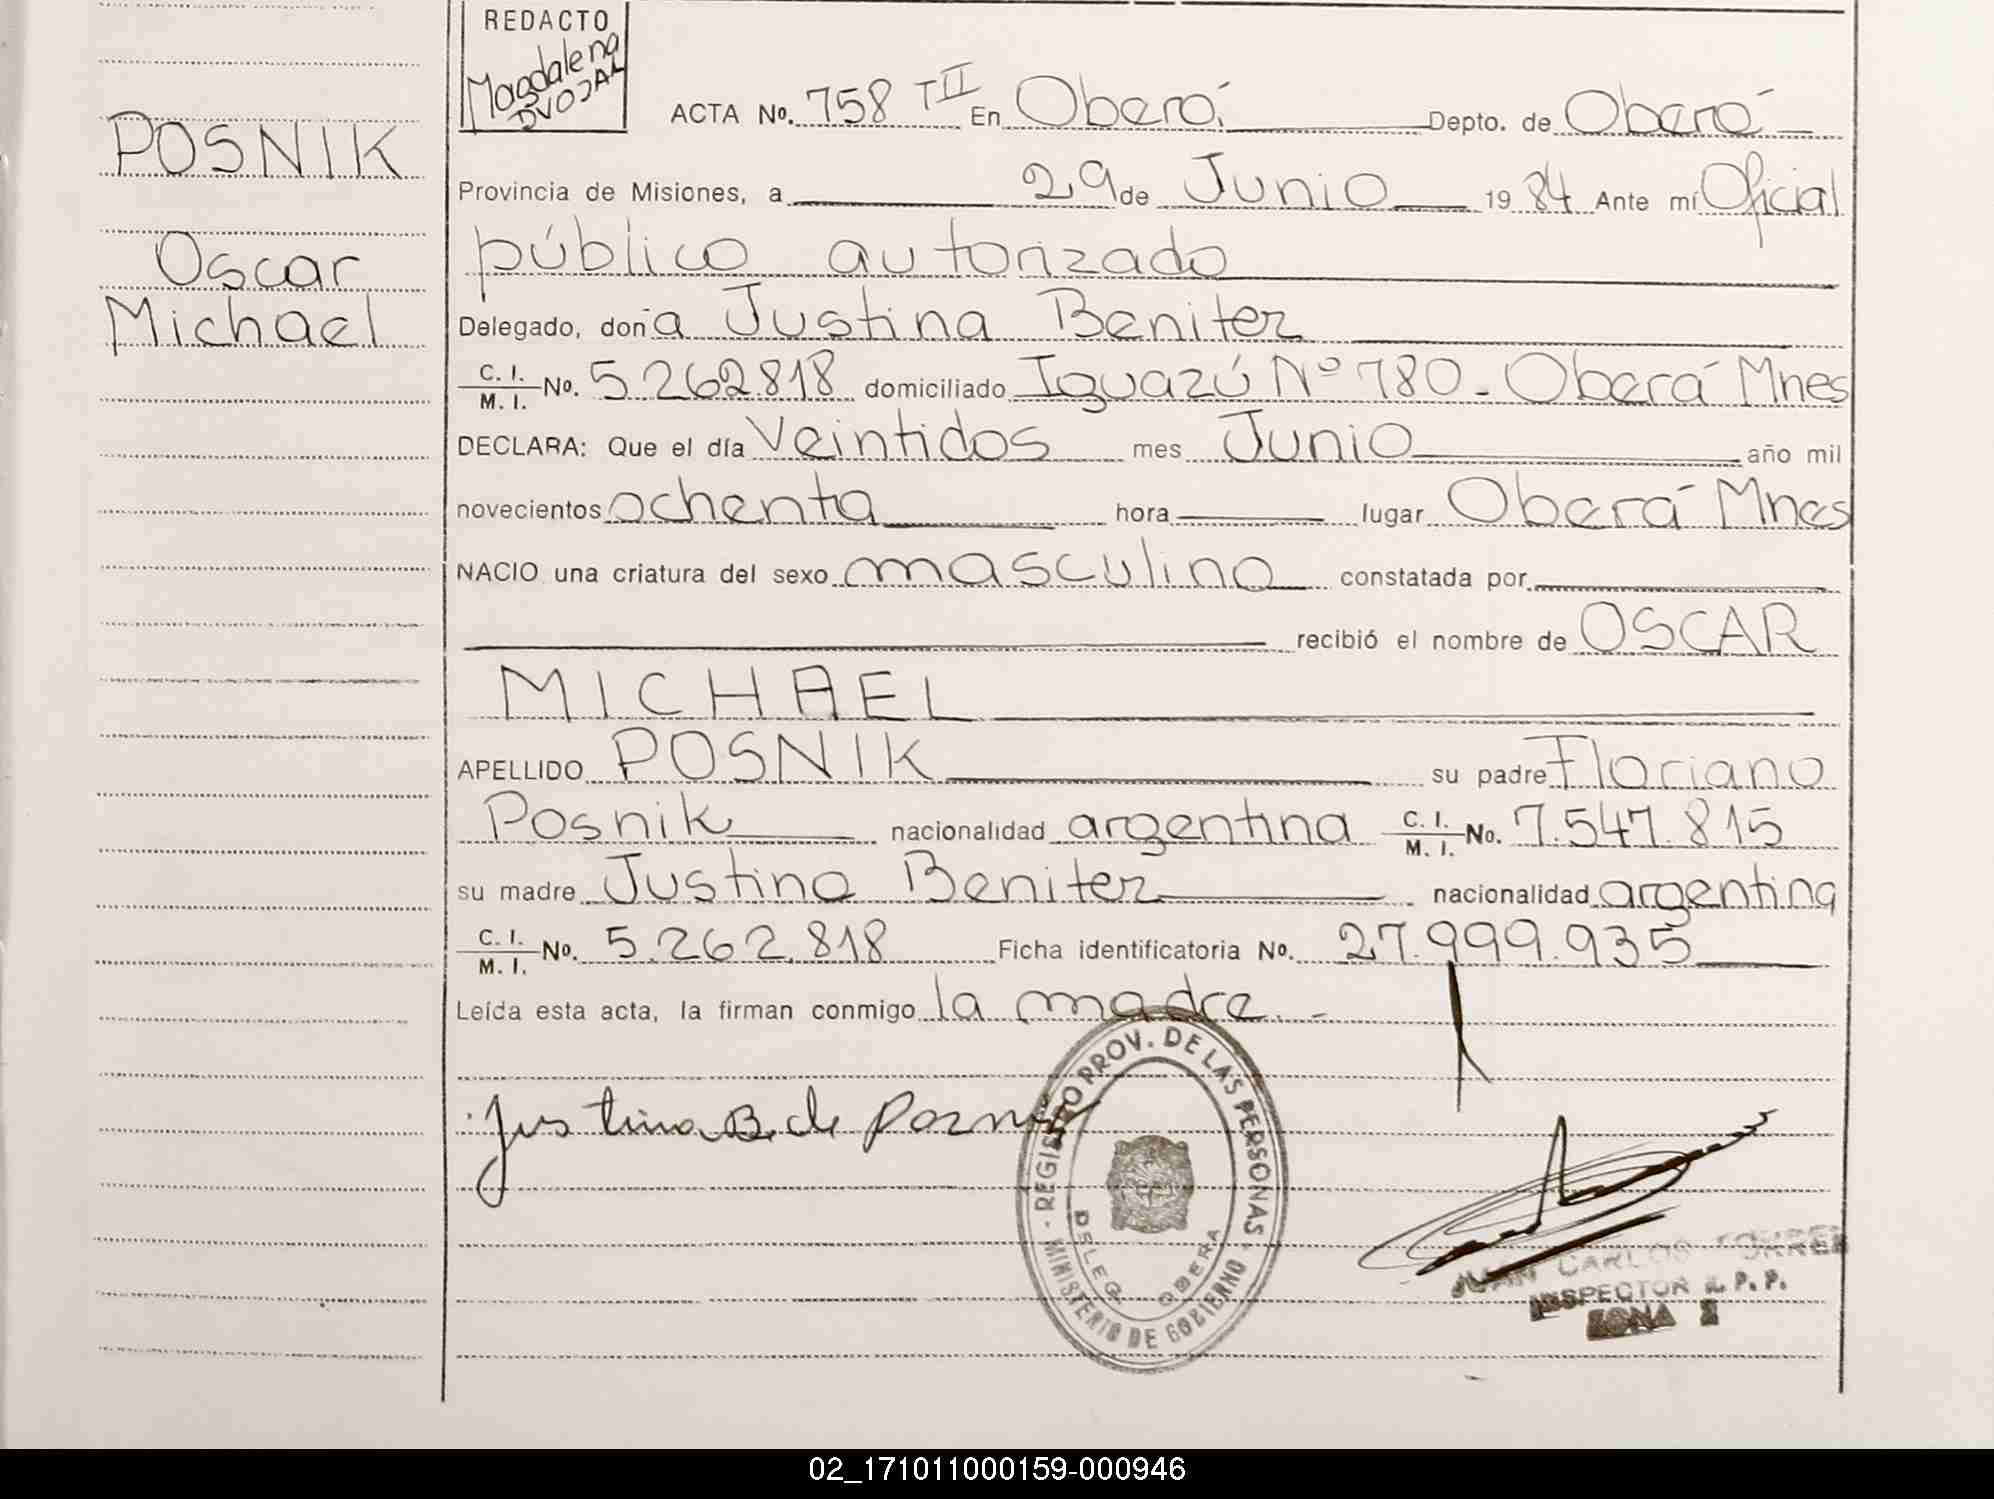 REDACTO
Magdalena
DVOJAK
POSNIK
Oscar
Michael
ACTA No. 758 TII En Oberá. Depto. de Oberá
Provincia de Misiones, a 29 de Junio 1984 Ante mí Oficial
público autorizado
Delegado, don a Justina Beniter
C. I. / M. I. No. 5.262.818 domiciliado Iguazú Nº 780 - Oberá Mnes
DECLARA: Que el día Veintidos mes Junio año mil
novecientos ochenta hora lugar Oberá Mnes
NACIO una criatura del sexo masculino constatada por
recibió el nombre de OSCAR
MICHAEL
APELLIDO POSNIK su padre Floriano
Posnik nacionalidad argentina C. I. / M. I. No. 7.547.815
su madre Justina Beniter nacionalidad argentina
C. I. / M. I. No. 5.262.818 Ficha identificatoria No. 27.999.935
Leída esta acta, la firman conmigo la madre. -
Justina B. de Posnik
REGISTRO PROV. DE LAS PERSONAS
MINISTERIO DE GOBIERNO
DELEG. OBERA
JUAN CARLOS TORRES
INSPECTOR R. P. P.
ZONA
02_171011000159-000946